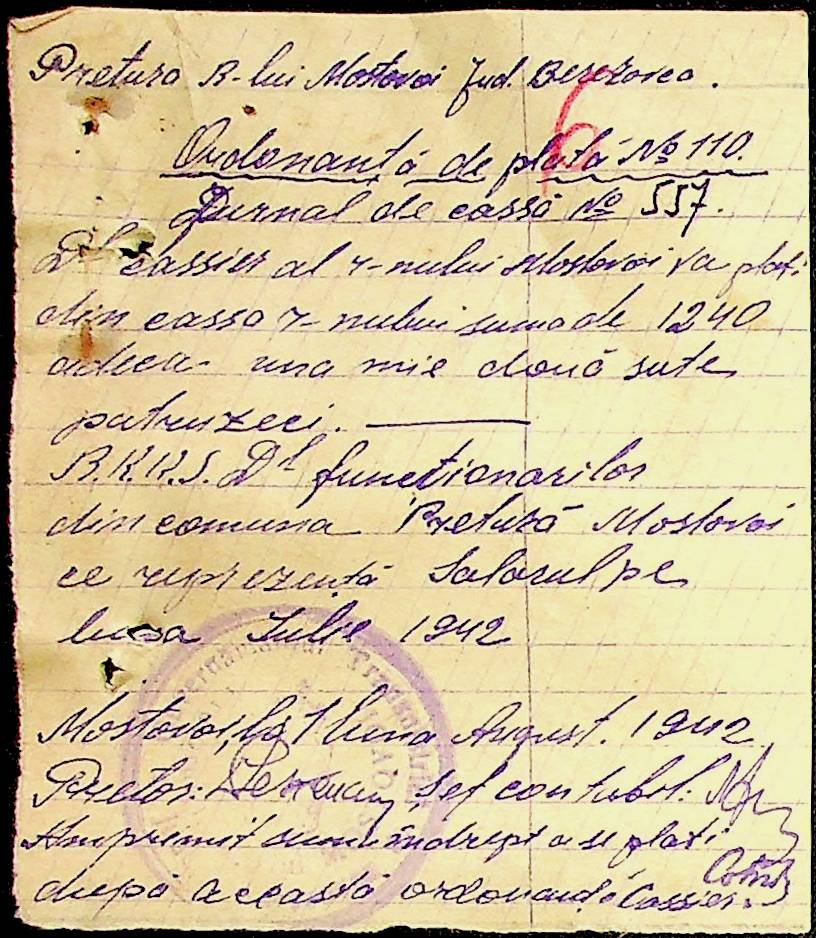 Pretura R-lui Mostovoi Jud. Berezovca.
6
Ordonanță de plată № 110.
Jurnal de cassă № 557.
Dl cassier al r-nului Mostovoi va plati
din cassa r-nului suma de 1240
adeca una mie două sute
patruzeci. —
Dl funcționarilor
din comuna Pretură Mostovoi
ce reprezentă Salarul pe
luna Iulie 1942
Mostovoi, la 1 luna August. 1942
Pretor: șef contabil:
Am primit suma îndrept a se plati
după această ordonanță Cassier: